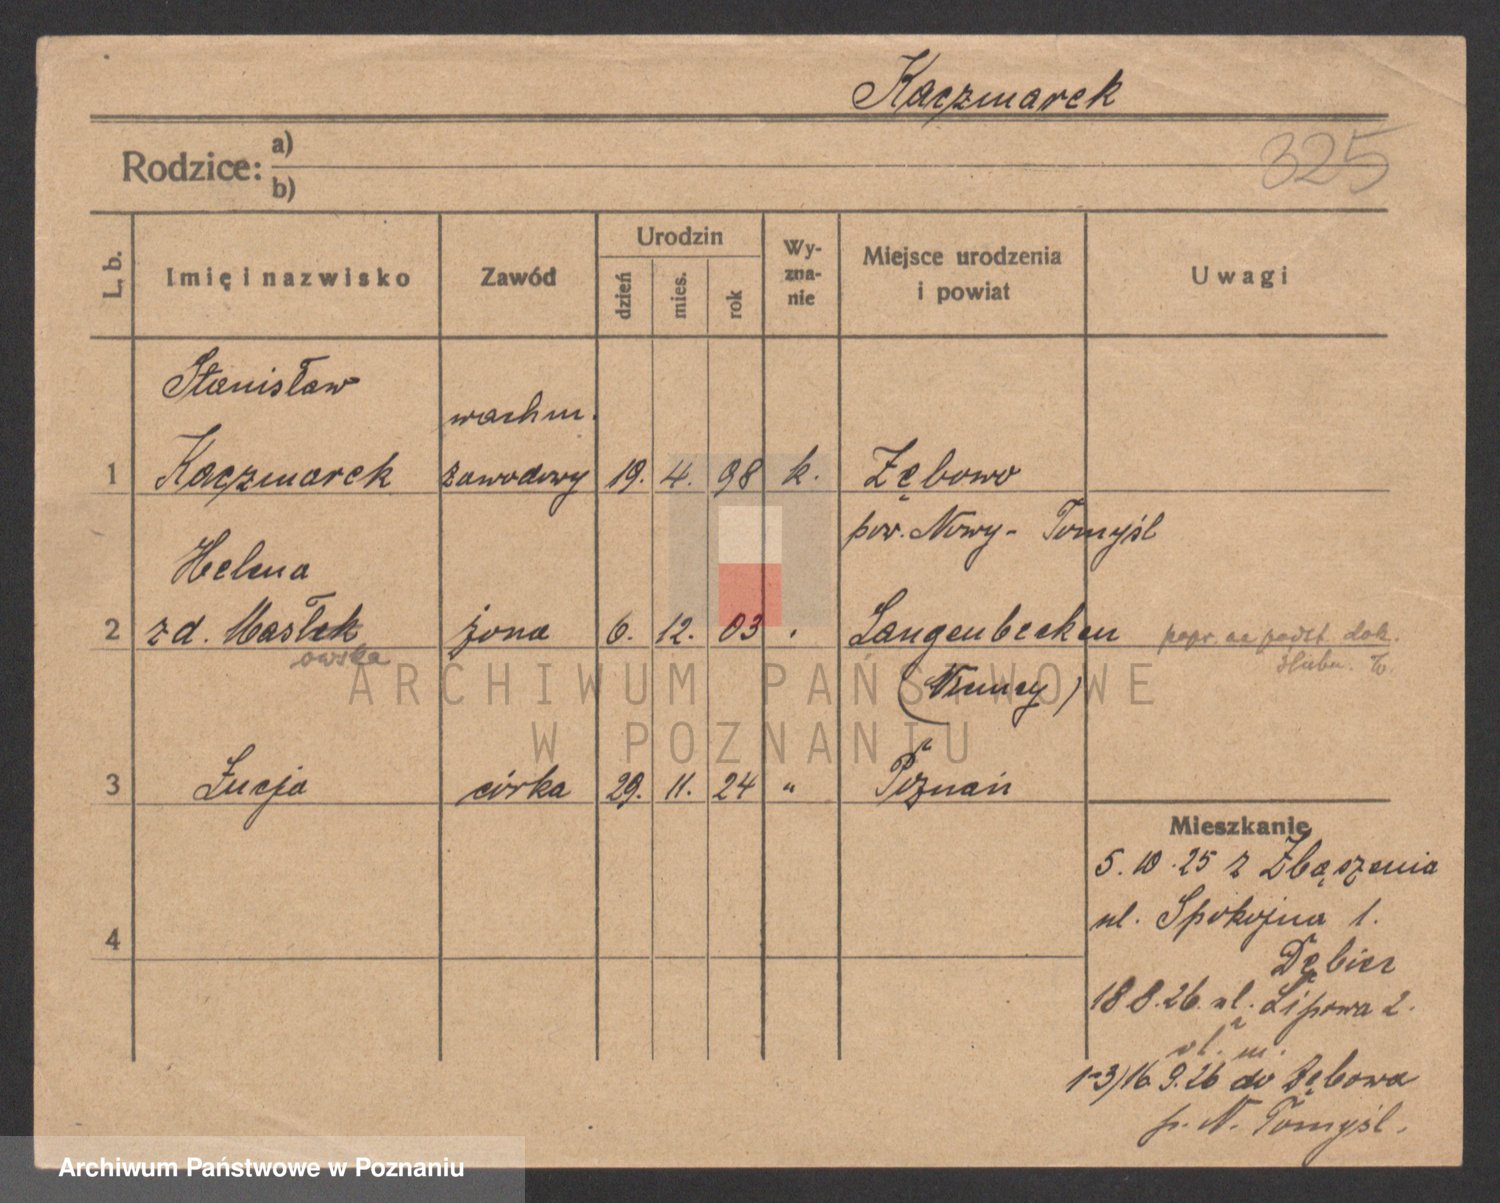 Kaczmarek
325
Rodzice: a)
b)
L. b.
Imię i nazwisko
Zawód
Urodzin
dzień
mies.
rok
Wy-
zna-
nie
Miejsce urodzenia
i powiat
Uwagi
Stanisław
wachm.
1 Kaczmarek zawodowy 19. 4. 98 k. Zębowo
pow. Nowy-Tomyśl
Helena
2 z d. Masłek żona 6. 12. 03 Langenbecken
owska
popr. na podst. dok.
ślubu.
(Niemcy)
3 Łucja córka 29. 11. 24 " Poznań
Mieszkanie
5. 10. 25 z Zbąszynia
ul. Spokojna 1.
4
Dębiec
18 8. 26. ul. Lipowa 2.
wł. m.
1-3) 16 9. 26 do Zębowa
p. N. Tomyśl.
ARCHIWUM PAŃSTWOWE
W POZNANIU
Archiwum Państwowe w Poznaniu